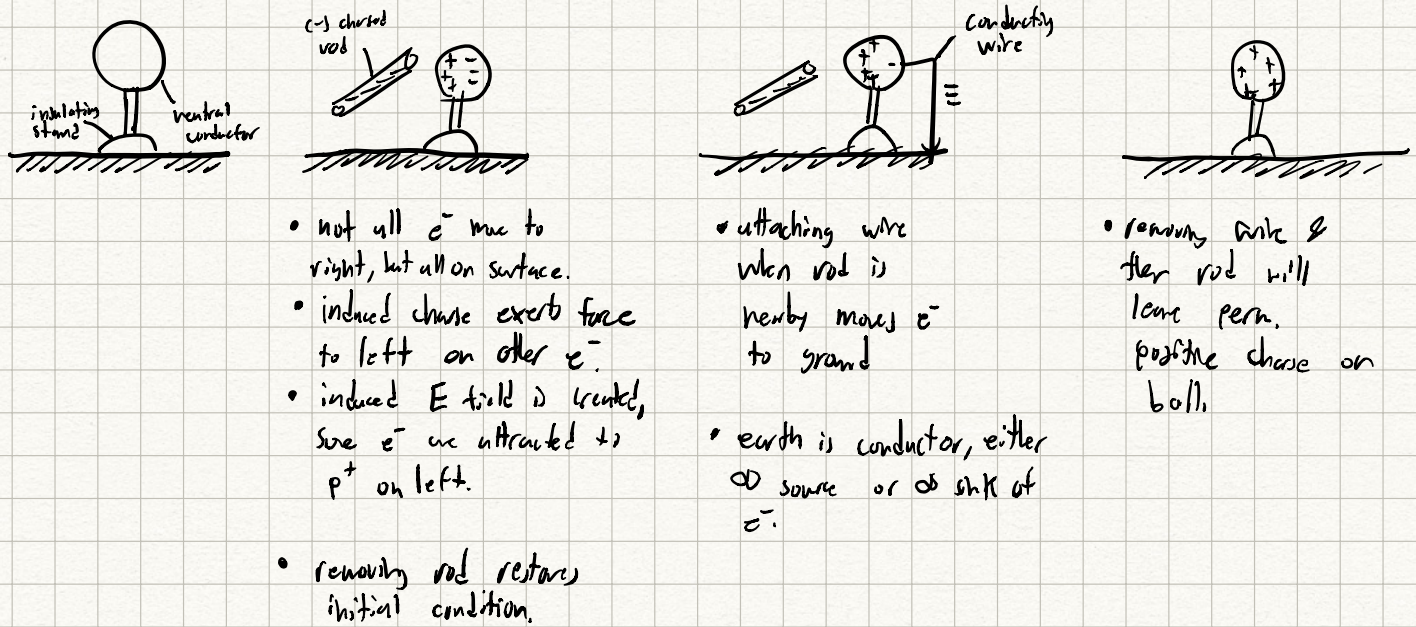 insulating
stand
neutral
conductor
(-) charged
rod
conducting
wire
• not all e⁻ move to
right, but all on surface.
• induced charge exerts force
to left on other e⁻.
• induced E field is created,
some e⁻ are attracted to
p⁺ on left.
• removing rod restores
initial condition.
• attaching wire
when rod is
nearby moves e⁻
to ground
• earth is conductor, either
∞ source or ∞ sink of
e⁻.
• removing wire &
then rod will
leave perm.
positive charge on
ball.